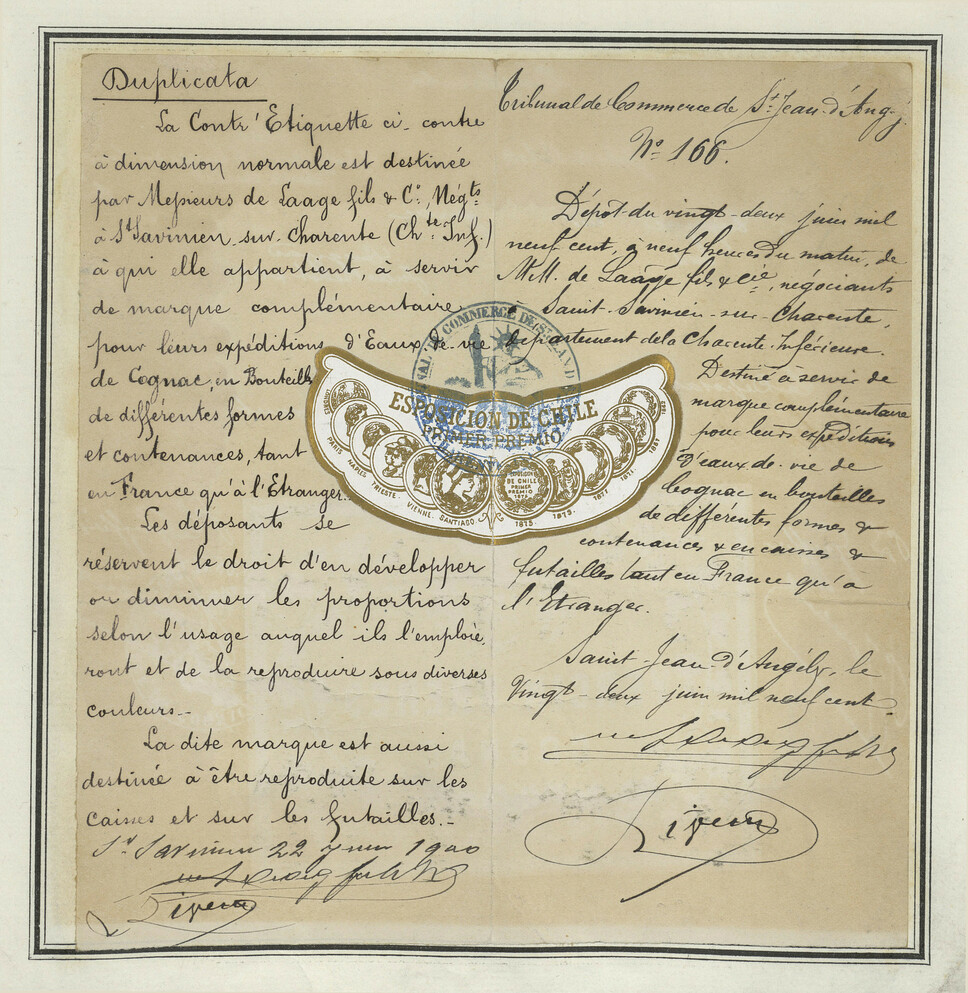 Duplicata
La Contr'Etiquette ci-contre
à dimension normale est destinée
par Messieurs de Laage fils & Cº, Négts
à St Savinien-sur-Charente (Chte Inf.)
à qui elle appartient, à servir
de marque complémentaire
pour leurs expéditions d'Eaux-de-vie
de Cognac, en Bouteilles
de différentes formes
et contenances, tant
en France qu'à l'Etranger.
Les déposants se
réservent le droit d'en développer
ou diminuer les proportions
selon l'usage auquel ils l'emploie
ront et de la reproduire sous diverses
couleurs.-
La dite marque est aussi
destinée à être reproduite sur les
caisses et sur les futailles.-
St Savinien 22 juin 1900
Tribunal de Commerce de St Jean-d'Angy.
Nº 166.
Dépôt du vingt-deux juin mil
neuf cent, à neuf heures du matin, de
M.M. de Laage fils & Cie, négociants
à Saint-Savinien-sur-Charente,
département de la Charente-Inférieure.
Destiné à servir de
marque complémentaire
pour leurs expéditions
d'eaux-de-vie de
Cognac en bouteilles
de différentes formes &
contenances & en caisses &
futailles tant en France qu'à
l'Etranger.
Saint-Jean-d'Angély, le
Vingt-deux juin mil neuf cent.
COMMERCE DE ST JEAN D
ESPOSICION DE CHILE
PRIMER PREMIO
PARIS NAPLES TRIESTE. VIENNE. SANTIAGO. 1875. 1873. 1877 1877 1857
ESPOSICION
DE CHILE
PRIMER
PREMIO
1875